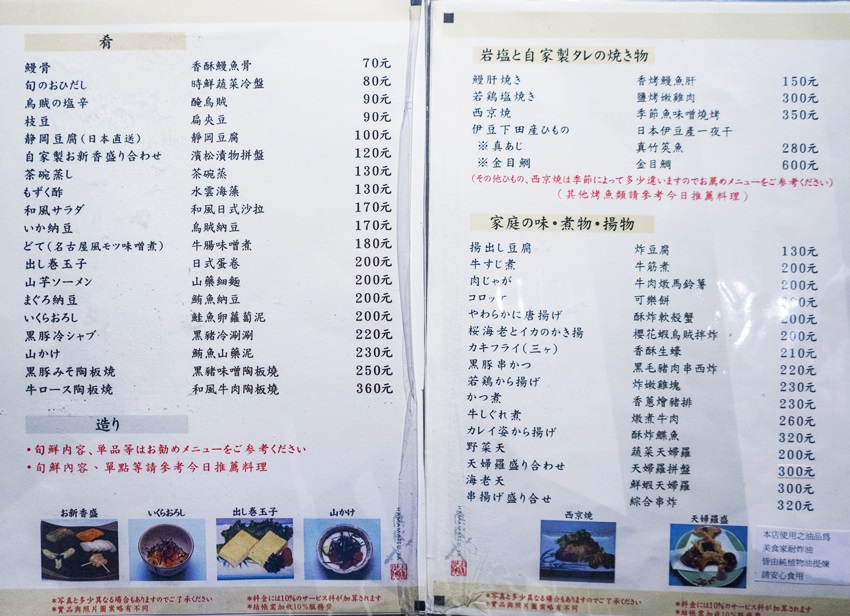 肴
鰻骨 香酥鰻魚骨 70元
旬のおひだし 時鮮蔬菜冷盤 80元
烏賊の塩辛 醃烏賊 90元
枝豆 扁尖豆 90元
静岡豆腐(日本直送) 靜岡豆腐 100元
自家製お新香盛り合わせ 濱松漬物拼盤 120元
茶碗蒸し 茶碗蒸 130元
もずく酢 水雲海藻 130元
和風サラダ 和風日式沙拉 170元
いか納豆 烏賊納豆 170元
どて(名古屋風モツ味噌煮) 牛腸味噌煮 180元
出し巻玉子 日式蛋卷 200元
山芋ソーメン 山藥細麵 200元
まぐろ納豆 鮪魚納豆 200元
いくらおろし 鮭魚卵蘿蔔泥 200元
黒豚冷シャブ 黑豬冷涮涮 220元
山かけ 鮪魚山藥泥 230元
黒豚みそ陶板焼 黑豬味噌陶板燒 250元
牛ロース陶板焼 和風牛肉陶板燒 360元
造り
・旬鮮内容、単品等はお勧めメニューをご参考ください
・旬鮮內容、單點等請參考今日推薦料理
お新香盛 いくらおろし 出し巻玉子 山かけ
*写真と多少異なる場合もありますのでご了承ください
*實品與照片圖案略有不同
*料金には10%のサービス料が加算されます
*結帳需加收10%服務費
岩塩と自家製タレの焼き物
鰻肝焼き 香烤鰻魚肝 150元
若鶏塩焼き 鹽烤嫩雞肉 300元
西京焼 季節魚味噌燒烤 350元
伊豆下田産ひもの 日本伊豆產一夜干
※真あじ 真竹筴魚 280元
※金目鯛 金目鯛 600元
(その他ひもの、西京焼は季節によって多少違いますのでお薦めメニューをご参考ください)
(其他烤魚類請參考今日推薦料理)
家庭の味・煮物・揚物
揚出し豆腐 炸豆腐 130元
牛すじ煮 牛筋煮 200元
肉じゃが 牛肉燉馬鈴薯 200元
コロッケ 可樂餅 200元
やわらかに唐揚げ 酥炸軟殼蟹 200元
桜海老とイカのかき揚 櫻花蝦烏賊拌炸 200元
カキフライ(三ヶ) 香酥生蠔 210元
黒豚串かつ 黑毛豬肉串西炸 220元
若鶏から揚げ 炸嫩雞塊 230元
かつ煮 香蔥燴豬排 230元
牛しぐれ煮 燉煮牛肉 260元
カレイ姿から揚げ 酥炸鰈魚 320元
野菜天 蔬菜天婦羅 200元
天婦羅盛り合わせ 天婦羅拼盤 300元
海老天 鮮蝦天婦羅 300元
串揚げ盛り合せ 綜合串炸 320元
西京焼 天婦羅盛
本店使用之油品為
美食家耐炸油
皆由純植物油提煉
請安心食用
*写真と多少異なる場合もありますのでご了承ください
*實品與照片圖案略有不同
*料金には10%のサービス料が
*結帳需加收10%服務費